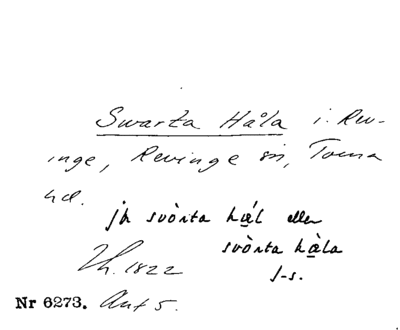 Swarta Håla i. Rev-
inge, Revinge sn, Torna
hd.
jh svò̀rta hǽl eller
svò̀rta hæ̀la
J-s.
Th. 1822
Nr 6273. Ant 5.